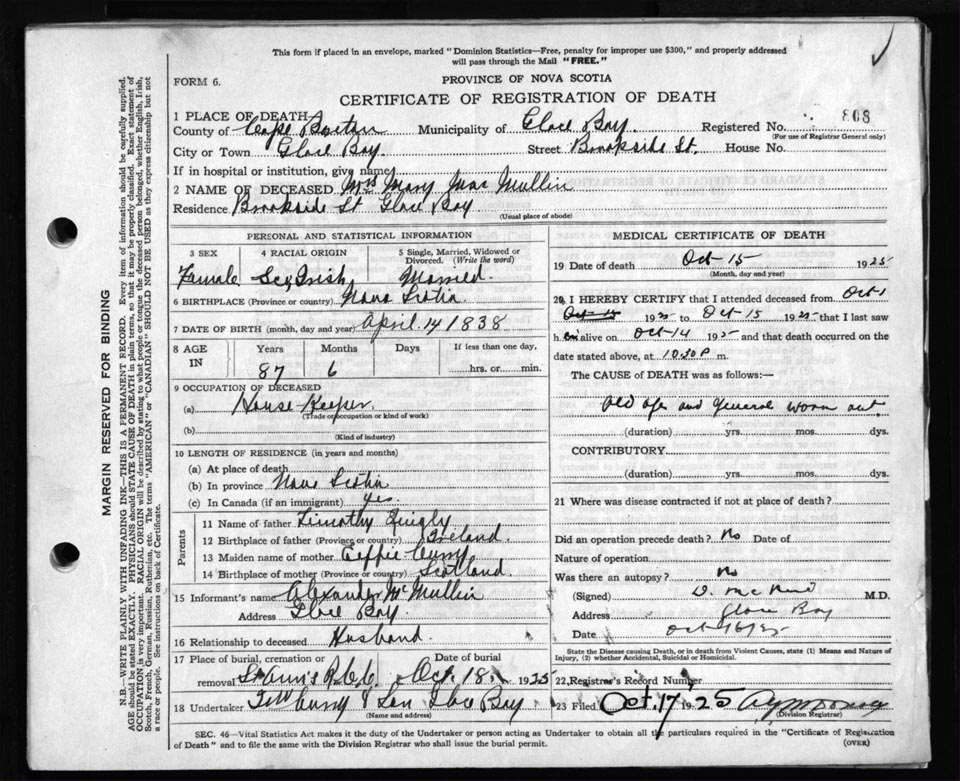 This form if placed in an envelope, marked "Dominion Statistics—Free, penalty for improper use $300," and properly addressed
will pass through the Mail "FREE."
FORM 6.
PROVINCE OF NOVA SCOTIA
CERTIFICATE OF REGISTRATION OF DEATH
1 PLACE OF DEATH
County of Cape Breton Municipality of Glace Bay. Registered No. 808
(For use of Registrar General only)
City or Town Glace Bay. Street Brookside St. House No.
If in hospital or institution, give name
2 NAME OF DECEASED Mrs Mary Mac Mullin
Residence Brookside St Glace Bay
(Usual place of abode)
PERSONAL AND STATISTICAL INFORMATION
3 SEX 4 RACIAL ORIGIN 5 Single, Married, Widowed or Divorced. (Write the word)
Female Irish Married.
6 BIRTHPLACE (Province or country) Nova Scotia
7 DATE OF BIRTH (month, day and year) April. 14 1838
8 AGE IN Years Months Days If less than one day,
87 6 hrs. or min.
9 OCCUPATION OF DECEASED
(a) House-Keeper.
(Trade occupation or kind of work)
(b)
(Kind of industry)
10 LENGTH OF RESIDENCE (in years and months)
(a) At place of death
(b) In province Nova Scotia
(c) In Canada (if an immigrant) yes.
Parents
11 Name of father Timothy
12 Birthplace of father (Province or country) Ireland.
13 Maiden name of mother Effie Curry
14 Birthplace of mother (Province or country) Scotland.
15 Informant's name Alexander McMullin
Address Glace Bay.
16 Relationship to deceased Husband.
17 Place of burial, cremation or removal St Ann's R.C.C. Date of burial Oct. 18. 1925
18 Undertaker Curry & Son Glace Bay
(Name and address)
MEDICAL CERTIFICATE OF DEATH
19 Date of death Oct-15 1925
(Month, day and year)
20 I HEREBY CERTIFY that I attended deceased from Oct 1
1925 to Oct-15 1925 that I last saw
h alive on Oct-14 1925 and that death occurred on the
date stated above, at 10.30 P. m.
The CAUSE of DEATH was as follows:—
Old age and general worn out
(duration) yrs. mos. dys.
CONTRIBUTORY.
(duration) yrs. mos. dys.
21 Where was disease contracted if not at place of death?
Did an operation precede death? No Date of
Nature of operation
Was there an autopsy? No
(Signed) M.D.
Address Glace Bay
Date Oct 16/25
State the Disease causing Death, or in death from Violent Causes, state (1) Means and Nature of
Injury, (2) whether Accidental, Suicidal or Homicidal.
22 Registrar's Record Number
23 Filed Oct. 17. 25
(Division Registrar)
SEC. 46—Vital Statistics Act makes it the duty of the Undertaker or person acting as Undertaker to obtain all the particulars required in the "Certificate of Registration
of Death" and to file the same with the Division Registrar who shall issue the burial permit.
(OVER)
MARGIN RESERVED FOR BINDING
N.B.—WRITE PLAINLY WITH UNFADING INK—THIS IS A PERMANENT RECORD. Every item of information should be carefully supplied.
AGE should be stated EXACTLY. PHYSICIANS should STATE CAUSE OF DEATH in plain terms, so that it may be properly classified. Exact statement of
OCCUPATION is very important. RACIAL ORIGIN will be described by stating to what people or race the deceased person belonged, whether English, Irish,
Scotch, French, German, Russian, Ruthenian, etc. The terms "AMERICAN or "CANADIAN" SHOULD NOT BE USED as they express citizenship but not
a race or people. See instructions on back of Certificate.